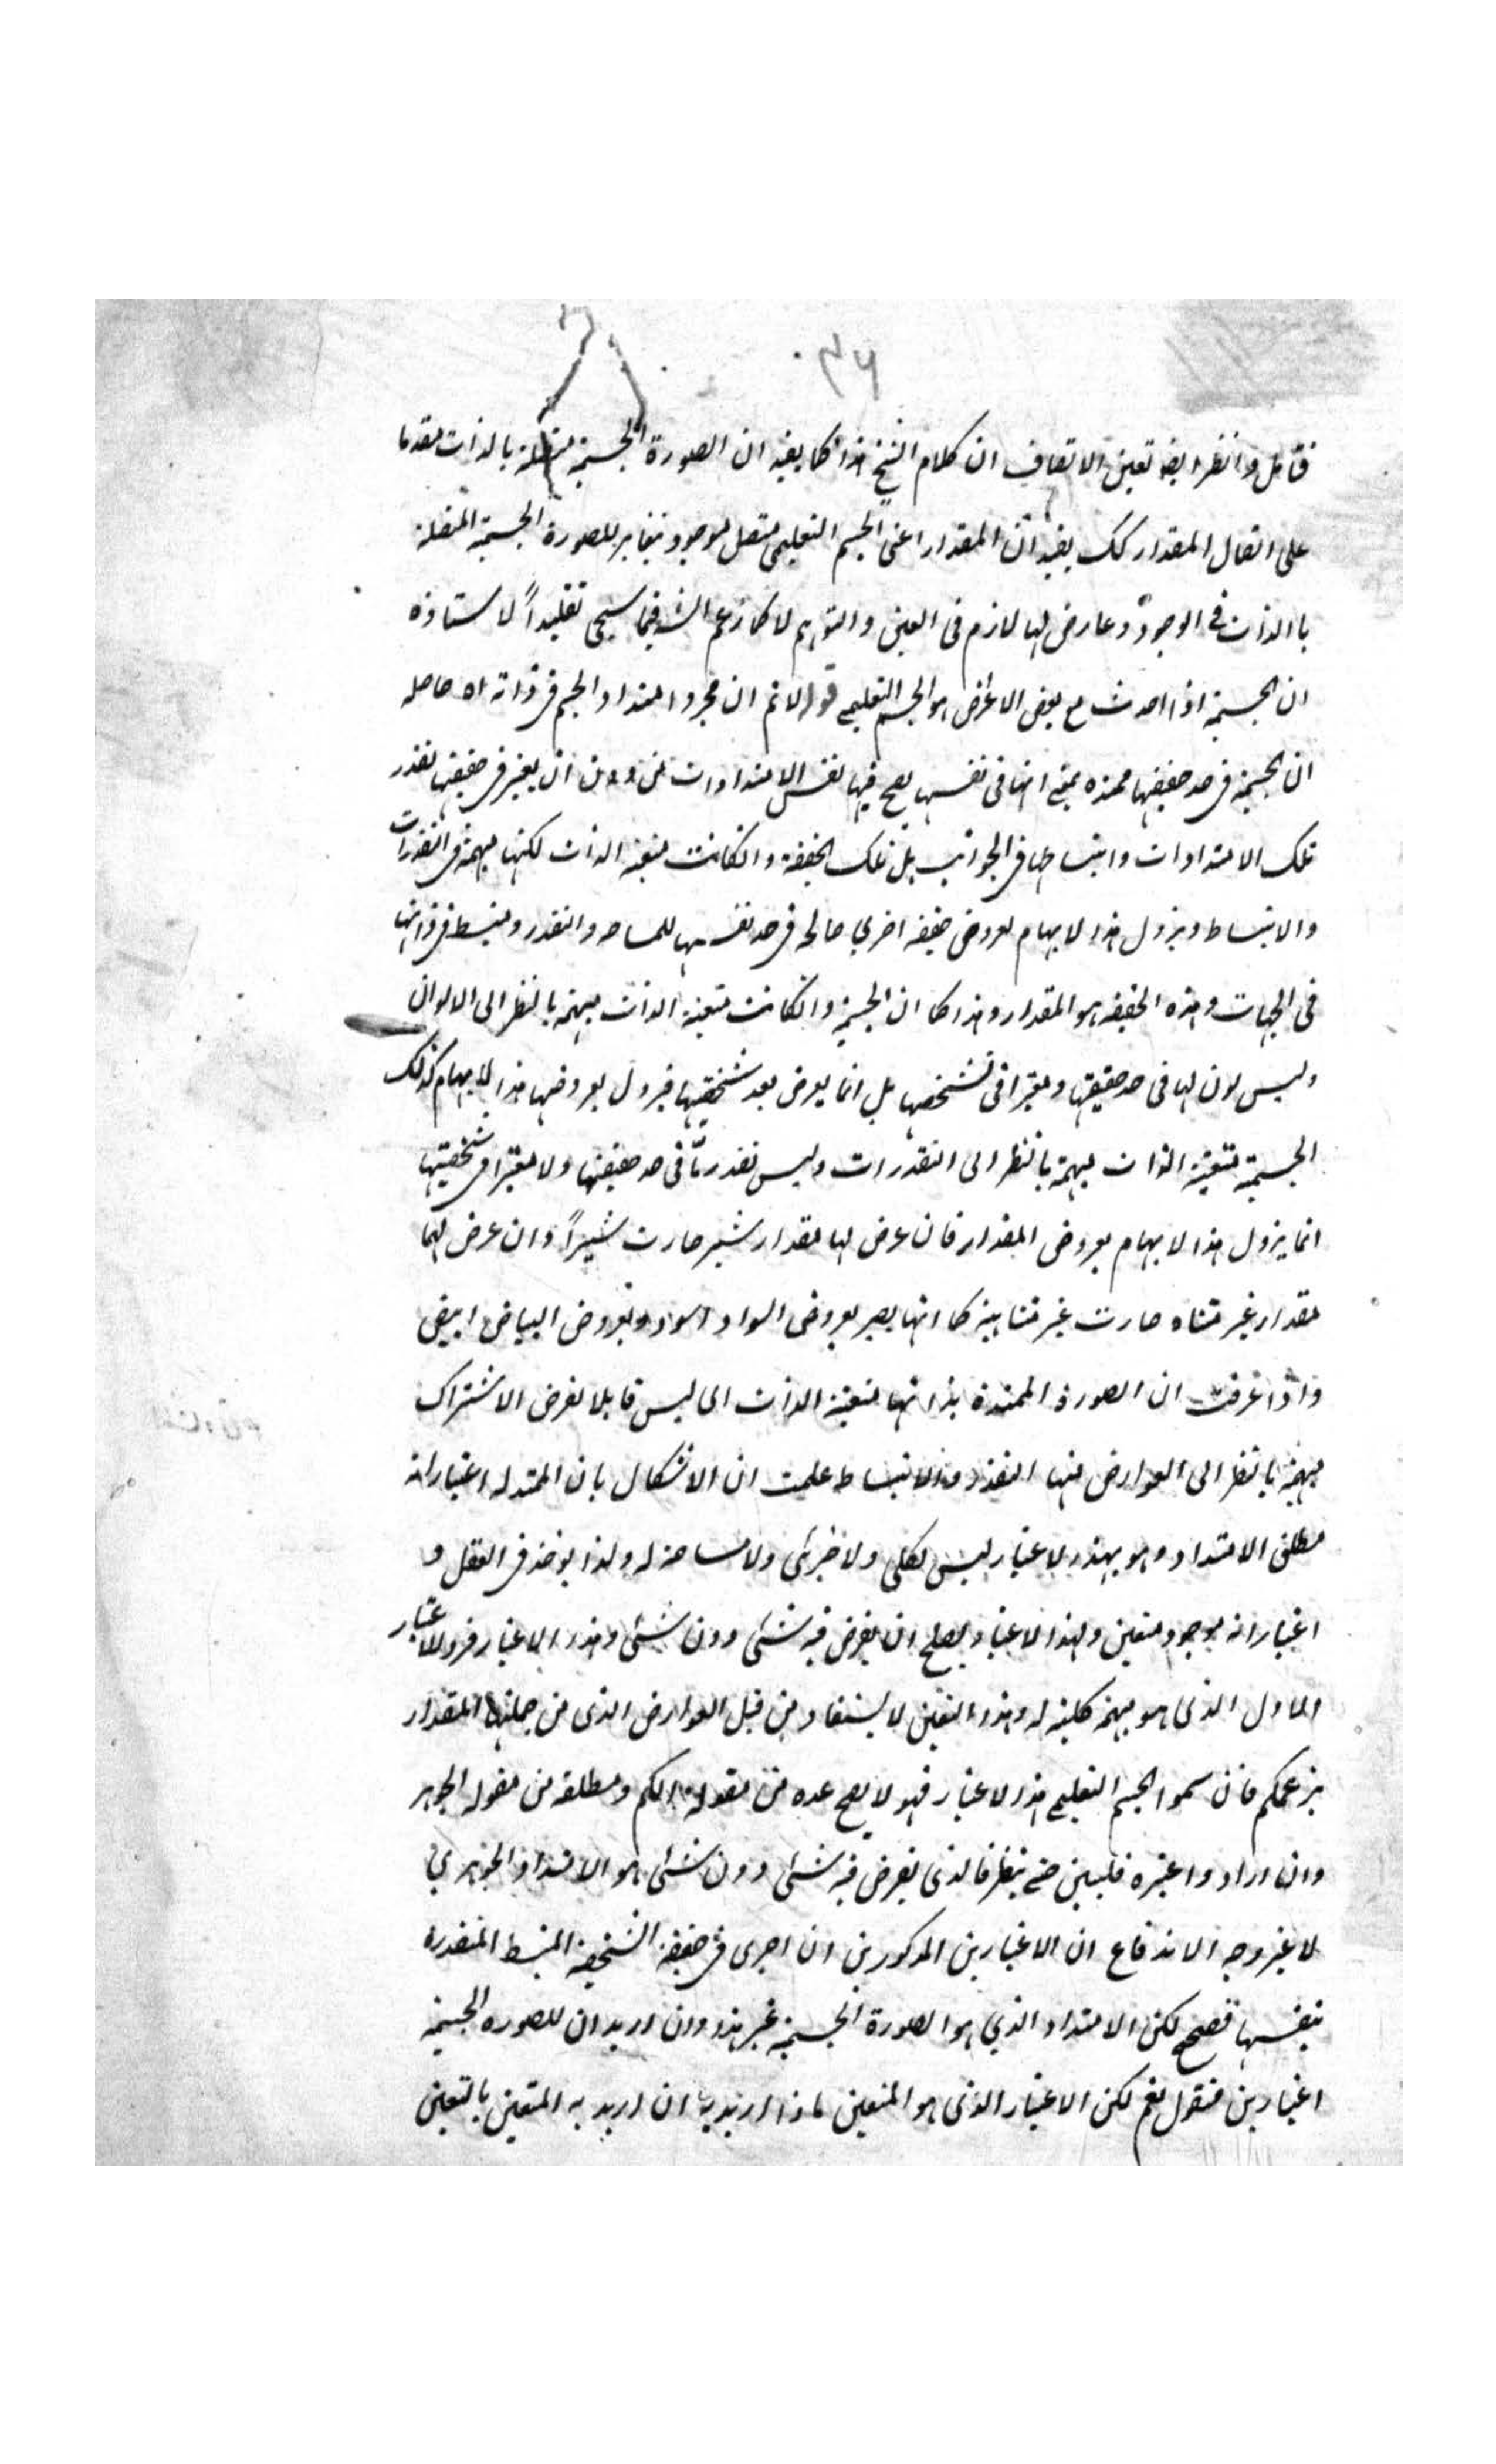 ٣٦
فتأمل وانظر ايضا تعين الاتصاف ان كلام الشيخ هذا كما يفيد ان الصورة الجسمية متصلة بالذات مقدما
على اتصال المقدار كك يفيد ان المقدار اعنى الجسم التعليمى متصل موجود يغاير للصورة الجسمية المتصلة
بالذات فى الوجود وعارض لها لازم فى العين والتوهم لا كما زعم الش فيما سيجى تقليداً لاستاذه
ان الجسمية اذا اخذت مع بعض الاعراض هو الجسم التعليمى قوله لا ثم ان مجرد امتداد الجسم فى ذاته اه حاصله
ان الجسمية فى حد حقيقتها ممتدة بمعنى انها فى نفسها يصح فيها نفس الامتدادات من دون ان يعتبر فى حقيقتها تقدر
تلك الامتدادات وانبساطها فى الجوانب بل تلك الحقيقة وانكانت متعينة الذات لكنها مبهمة فى التقدرات
والانبساط ويزول هذا الابهام لعروض حقيقة اخرى صالحة فى حد نفسها للمساحة والتقدر ومنبسط فى ذاتها
فى الجهات وهذه الحقيقة هو المقدار وهذا كما ان الجسمية وانكانت متعينة الذات مبهمة بالنظر الى الالوان
وليس لون لها فى حد حقيقتها ومعتبرا فى تشخصها بل انما يعرض بعد شخصيتها فيزول بعروضها هذا الابهام كذلك
الجسمية متعينة الذات مبهمة بالنظر الى التقدرات وليس تقدر ما فى حد حقيقتها ولا معتبرا فى شخصيتها
انما يزول هذا الابهام بعروض المقدار فان عرض لها مقدار شبر صارت شبراً وان عرض لها
مقدار غير متناه صارت غير متناهية كما انها يصير بعروض السواد اسود وبعروض البياض ابيض
واذا عرفت ان الصورة الممتدة بذاتها متعينة الذات اى ليس قابلا لفرض الاشتراك
مبهمة بالنظر الى العوارض منها التقدر والانبساط علمت ان الاشكال بان الممتد له اعتبار انه
مطلق الامتداد وهو بهذا الاعتبار ليس بكلى ولا جزئى ولا مساحة له ولذا يوخذ فى العقل و
اعتبار انه موجود متعين ولهذا الاعتبار يصلح ان يفرض فيه شئ دون شئ وهذا الاعتبار فرد للاعتبار
الاول الذى هو مبهمة كلية له وهذا التعين لا يستفاد من قبل العوارض الذى من جملتها المقدار
بزعمكم فان سموا الجسم التعليمى هذا الاعتبار فهو لا يصح عده من مقولة الكم ومطلقه من مقولة الجوهر
وان ارادوا غيره فليبين حتى ينظر فالذى يفرض فيه شئ دون شئ هو الامتداد الجوهرى
لا غير وجه الاندفاع ان الاعتبارين المذكورين ان اجرى فى حقيقة الشخصية المنبسط المتقدرة
بنفسها فصحيح لكن الامتداد الذى هو الصورة الجسمية غير هذا وان اريد ان للصورة الجسمية
اعتبارين فنقول نعم لكن الاعتبار الذى هو المتعين ماذا اريد به ان اريد به المتعين بالتعين